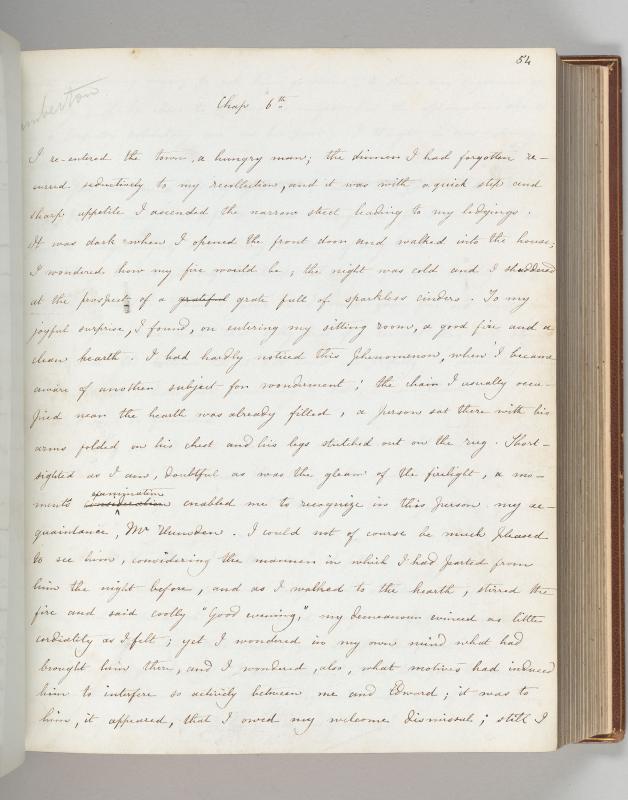 54
mberton
Chap 6th
I re-entered the town, a hungry man; the dinner I had forgotten re-
curred seductively to my recollection, and it was with a quick step and
sharp appetite I ascended the narrow street leading to my lodgings.
It was dark when I opened the front door and walked into the house;
I wondered how my fire would be; the night was cold and I shuddered
at the prospect of a grateful grate full of sparkless cinders. To my
joyful surprise, I found, on entering my sitting room, a good fire and a
clean hearth. I had hardly noticed this phenomenon, when I became
aware of another subject for wonderment; the chair I usually occu-
pied near the hearth was already filled, a person sat there with his
arms folded on his chest and his legs stretched out on the rug. Short-
sighted as I am, doubtful as was the gleam of the firelight, a mo-
examination
ments consideration enabled me to recognize in this person my ac-
quaintance, Mr Hunsden. I could not of course be much pleased
to see him, considering the manner in which I had parted from
him the night before, and as I walked to the hearth, stirred the
fire and said coolly "Good evening," my demeanour evinced as little
cordiality as I felt; yet I wondered in my own mind what had
brought him there, and I wondered, also, what motives had induced
him to interfere so actively between me and Edward; it was to
him, it appeared, that I owed my welcome dismissal; still I